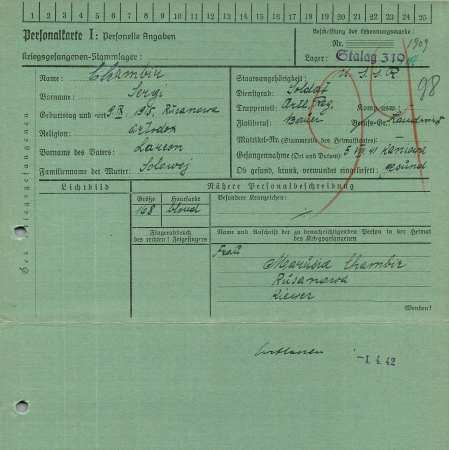 1 2 3 4 5 6 7 8 9 10 11 12 13 14 15 16 17 18 19 20 21 22 23 24 25
Personalkarte I: Personelle Angaben
Beschriftung der Erkennungsmarke
Nr. 1909
Kriegsgefangenen-Stammlager:
Lager: Stalag 319
98
Des Kriegsgefangenen
Name: Chambir
Vorname: Sergi
Geburtstag und -ort: 9.IX 1915, Rusanowa
Religion: ortodox
Vorname des Vaters: Lareon
Familienname der Mutter: Solowej
Staatsangehörigkeit: U.S.S.R
Dienstgrad: Soldat
Truppenteil: Komp. usw.:
Zivilberuf: Bauer Berufs-Gr.:
Matrikel Nr. (Stammrolle des Heimatstaates):
Gefangennahme (Ort und Datum): 5 VIII 41
Ob gesund, krank, verwundet eingeliefert: gesund
Lichtbild
Nähere Personalbeschreibung
Größe Haarfarbe Besondere Kennzeichen:
168 blond
Fingerabdruck
des rechten! Zeigefingers
Name und Anschrift der zu benachrichtigenden Person in der Heimat
des Kriegsgefangenen
Frau
Marusia Chambir
Rusanowa
Kiewer
Wenden!
Entlassen -1.4.42